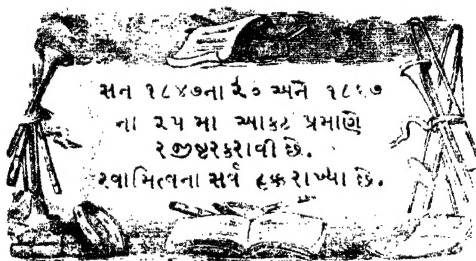 સન ૧૮૪૭ના ૨૦ અને ૧૮૬૭
ના ૨૫ મા આકટ પ્રમાણે
રજીષ્ટરકરાવી છે.
સ્વામિત્વના સર્વ હક્ક રાખ્યા છે.